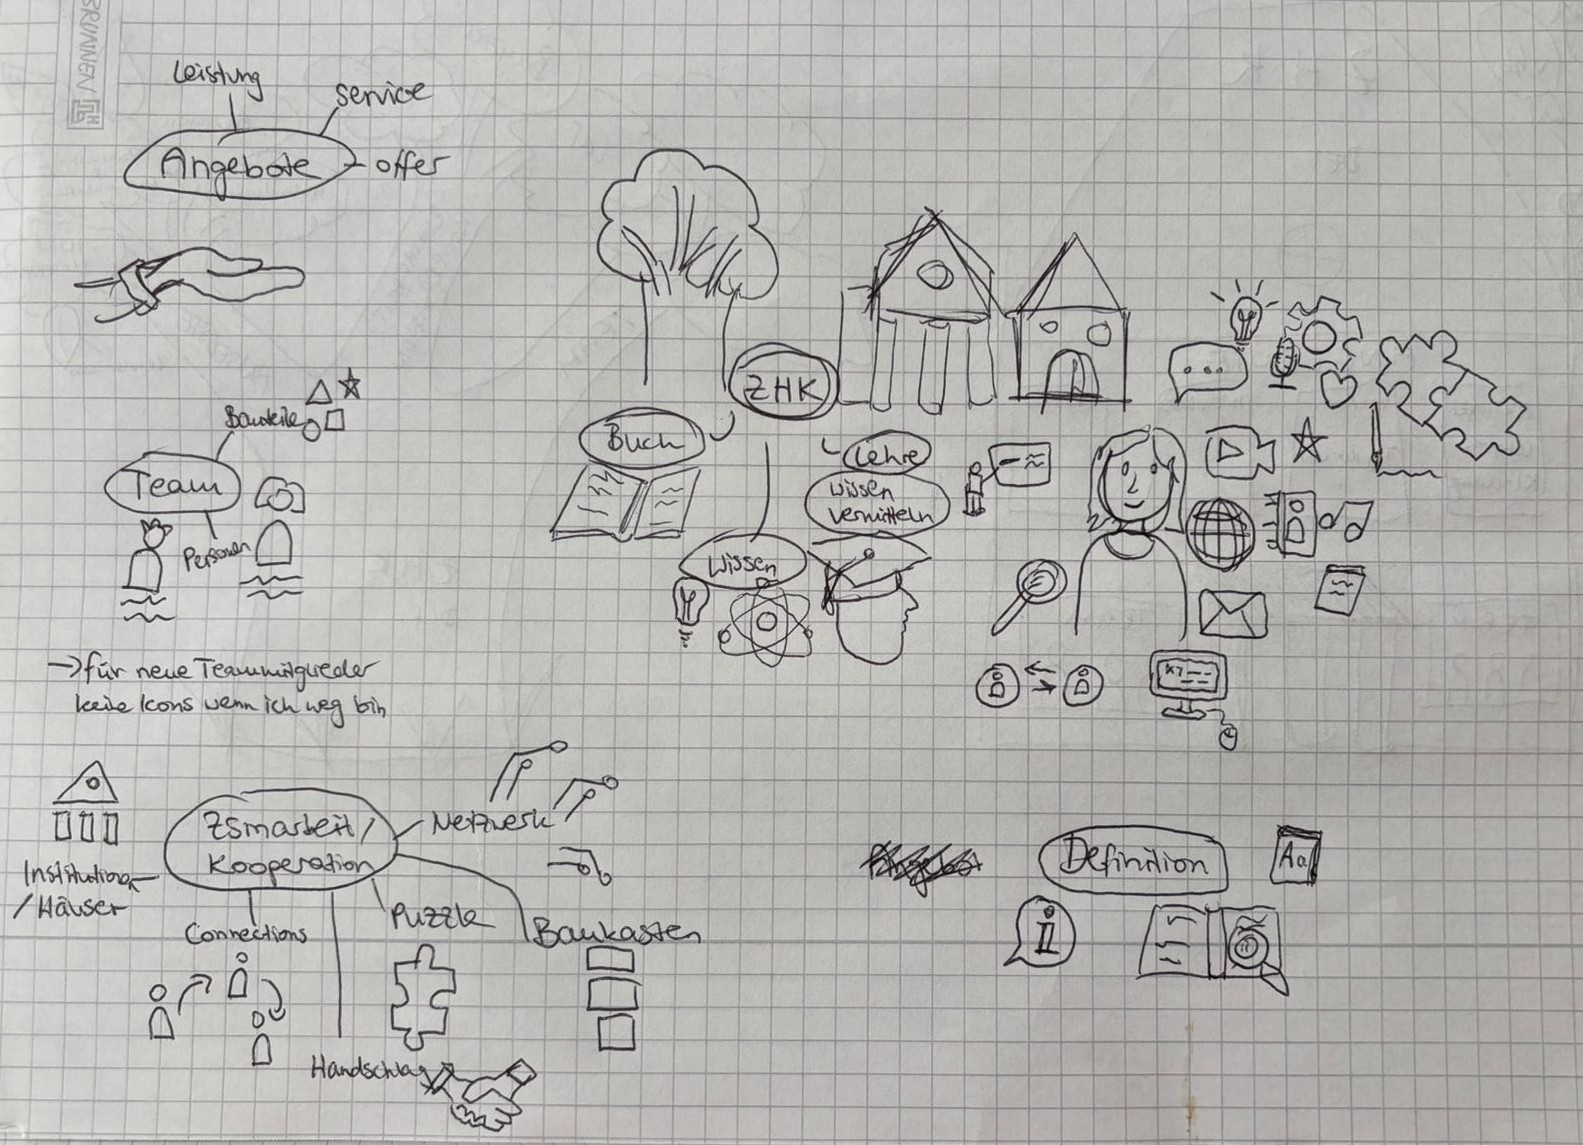 BRUNNEN
Leistung
service
Angebote
offer
ZHK
Buch
Lehre
Wissen
vermitteln
Wissen
Bauteile
Team
Personen
→ für neue Teammitglieder
keine Icons wenn ich weg bin
KI
Zsmarbeit/
Kooperation
Netzwerk
Institutionen
/Häuser
Connections
Puzzle
Baukasten
Handschlag
Definition
Aa
i